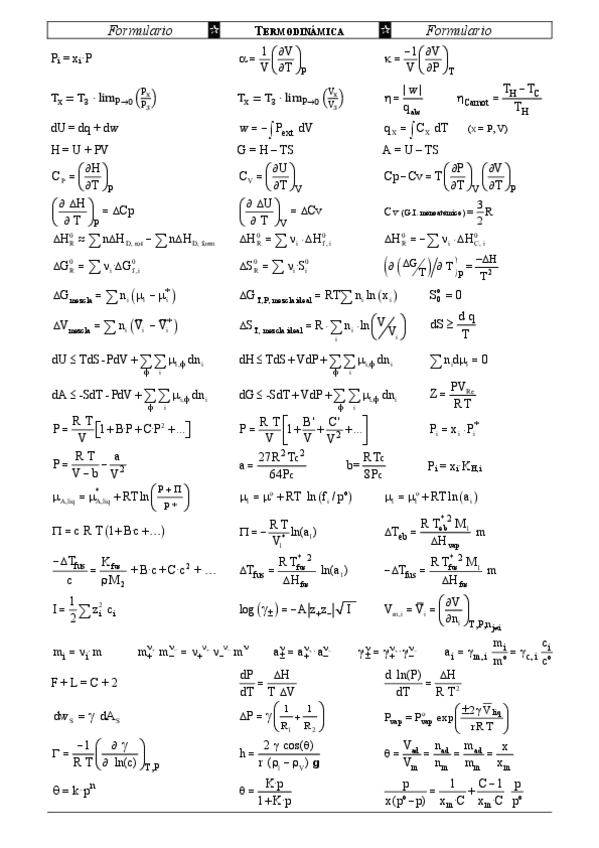 Formulario ✰ TERMODINÁMICA ✰ Formulario
Pᵢ = xᵢ·P    α = 1/V (∂V/∂T)_P    κ = −1/V (∂V/∂P)_T
Tₓ = T₃ · lim_P→0 (Pₓ/P₃)    Tₓ = T₃ · lim_P→0 (Vₓ/V₃)    η = |w|/q_abs    η_Carnot = (T_H − T_C)/T_H
dU = dq + dw    w = −∫P_ext dV    q_X = ∫C_X dT (X = P, V)
H = U + PV    G = H − TS    A = U − TS
C_P = (∂H/∂T)_P    C_V = (∂U/∂T)_V    Cp − Cv = T (∂P/∂T)_V (∂V/∂T)_P
(∂ ΔH/∂ T)_P = ΔCp    (∂ ΔU/∂ T)_V = ΔCv    Cv (G.I. monoatómico) = 3/2 R
ΔH_R^0 ≈ ∑nΔH_D, rot − ∑nΔH_D, form    ΔH_R^0 = ∑νᵢ·ΔH_f,i^0    ΔH_R^0 = −∑νᵢ·ΔH_C,i^0
ΔG_R^0 = ∑νᵢ·ΔG_f,i^0    ΔS_R^0 = ∑νᵢ·Sᵢ^0    (∂(ΔG/T)/∂ T)_P = −ΔH/T²
ΔG_mezcla = ∑nᵢ(μᵢ − μᵢ*)    ΔG_T,P, mezcla ideal = RT∑nᵢ ln(xᵢ)    S₀° = 0
ΔV_mezcla = ∑nᵢ(V̄ᵢ − V̄ᵢ*)    ΔS_T, mezcla ideal = R · ∑nᵢ · ln(V/Vᵢ)    dS ≥ d q/T
dU ≤ TdS - PdV + ∑_ϕ∑_i μ_i,ϕ dnᵢ    dH ≤ TdS + VdP + ∑_ϕ∑_i μ_i,ϕ dnᵢ    ∑nᵢdμᵢ = 0
dA ≤ -SdT - PdV + ∑_ϕ∑_i μ_i,ϕ dnᵢ    dG ≤ -SdT + VdP + ∑_ϕ∑_i μ_i,ϕ dnᵢ    Z = PV_Re/R T
P = R T/V [1 + B·P + C·P² + ...]    P = R T/V [1 + B'/V + C'/V² + ...]    Pᵢ = xᵢ · Pᵢ*
P = R T/(V − b) − a/V²    a = 27R²Tc²/64Pc    b = RTc/8Pc    Pᵢ = xᵢ·K_H,i
μ_A,liq = μ*_A,liq + RT ln((P + Π)/P*)    μᵢ = μ° + RT ln(fᵢ/p°)    μᵢ = μᵢ° + RT ln(aᵢ)
Π = c R T (1 + Bc + ...)    Π = − R T/Vᵢ* ln(aᵢ)    ΔT_eb = R T*_eb² Mᵢ/ΔH_vap m
−ΔT_fus/c = K_fus/ρM₂ + B·c + C·c² + ...    ΔT_fus = R T*_fus²/ΔH_fus ln(aᵢ)    −ΔT_fus = R T*_fus² Mᵢ/ΔH_fus m
I = 1/2 ∑zᵢ² cᵢ    log(γ±) = −A|z₊z₋|√I    V_m,i = V̄ᵢ = (∂V/∂nᵢ)_T,P,n_j≠i
mᵢ = νᵢ·m    m₊^ν₊ m₋^ν₋ = ν₊^ν₊ ν₋^ν₋ m^ν    a±^ν = a₊^ν₊·a₋^ν₋    γ±^ν = γ₊^ν₊·γ₋^ν₋    aᵢ = γ_m,i mᵢ/m° = γ_c,i cᵢ/c°
F + L = C + 2    dP/dT = ΔH/T ΔV    d ln(P)/dT = ΔH/R T²
dw_S = γ dA_S    ΔP = γ(1/R₁ + 1/R₂)    P_vap = P°_vap exp(±2γV̄_liq/rRT)
Γ = −1/R T (∂ γ/∂ ln(c))_T,P    h = 2 γ cos(θ)/r (ρ_l − ρ_v) g    θ = V_ad/V_m = n_ad/n_m = m_ad/m_m = x/x_m
θ = k·pⁿ    θ = K·p/(1+K·p)    p/x(p° − p) = 1/x_m·C + (C − 1)/x_m·C p/p°